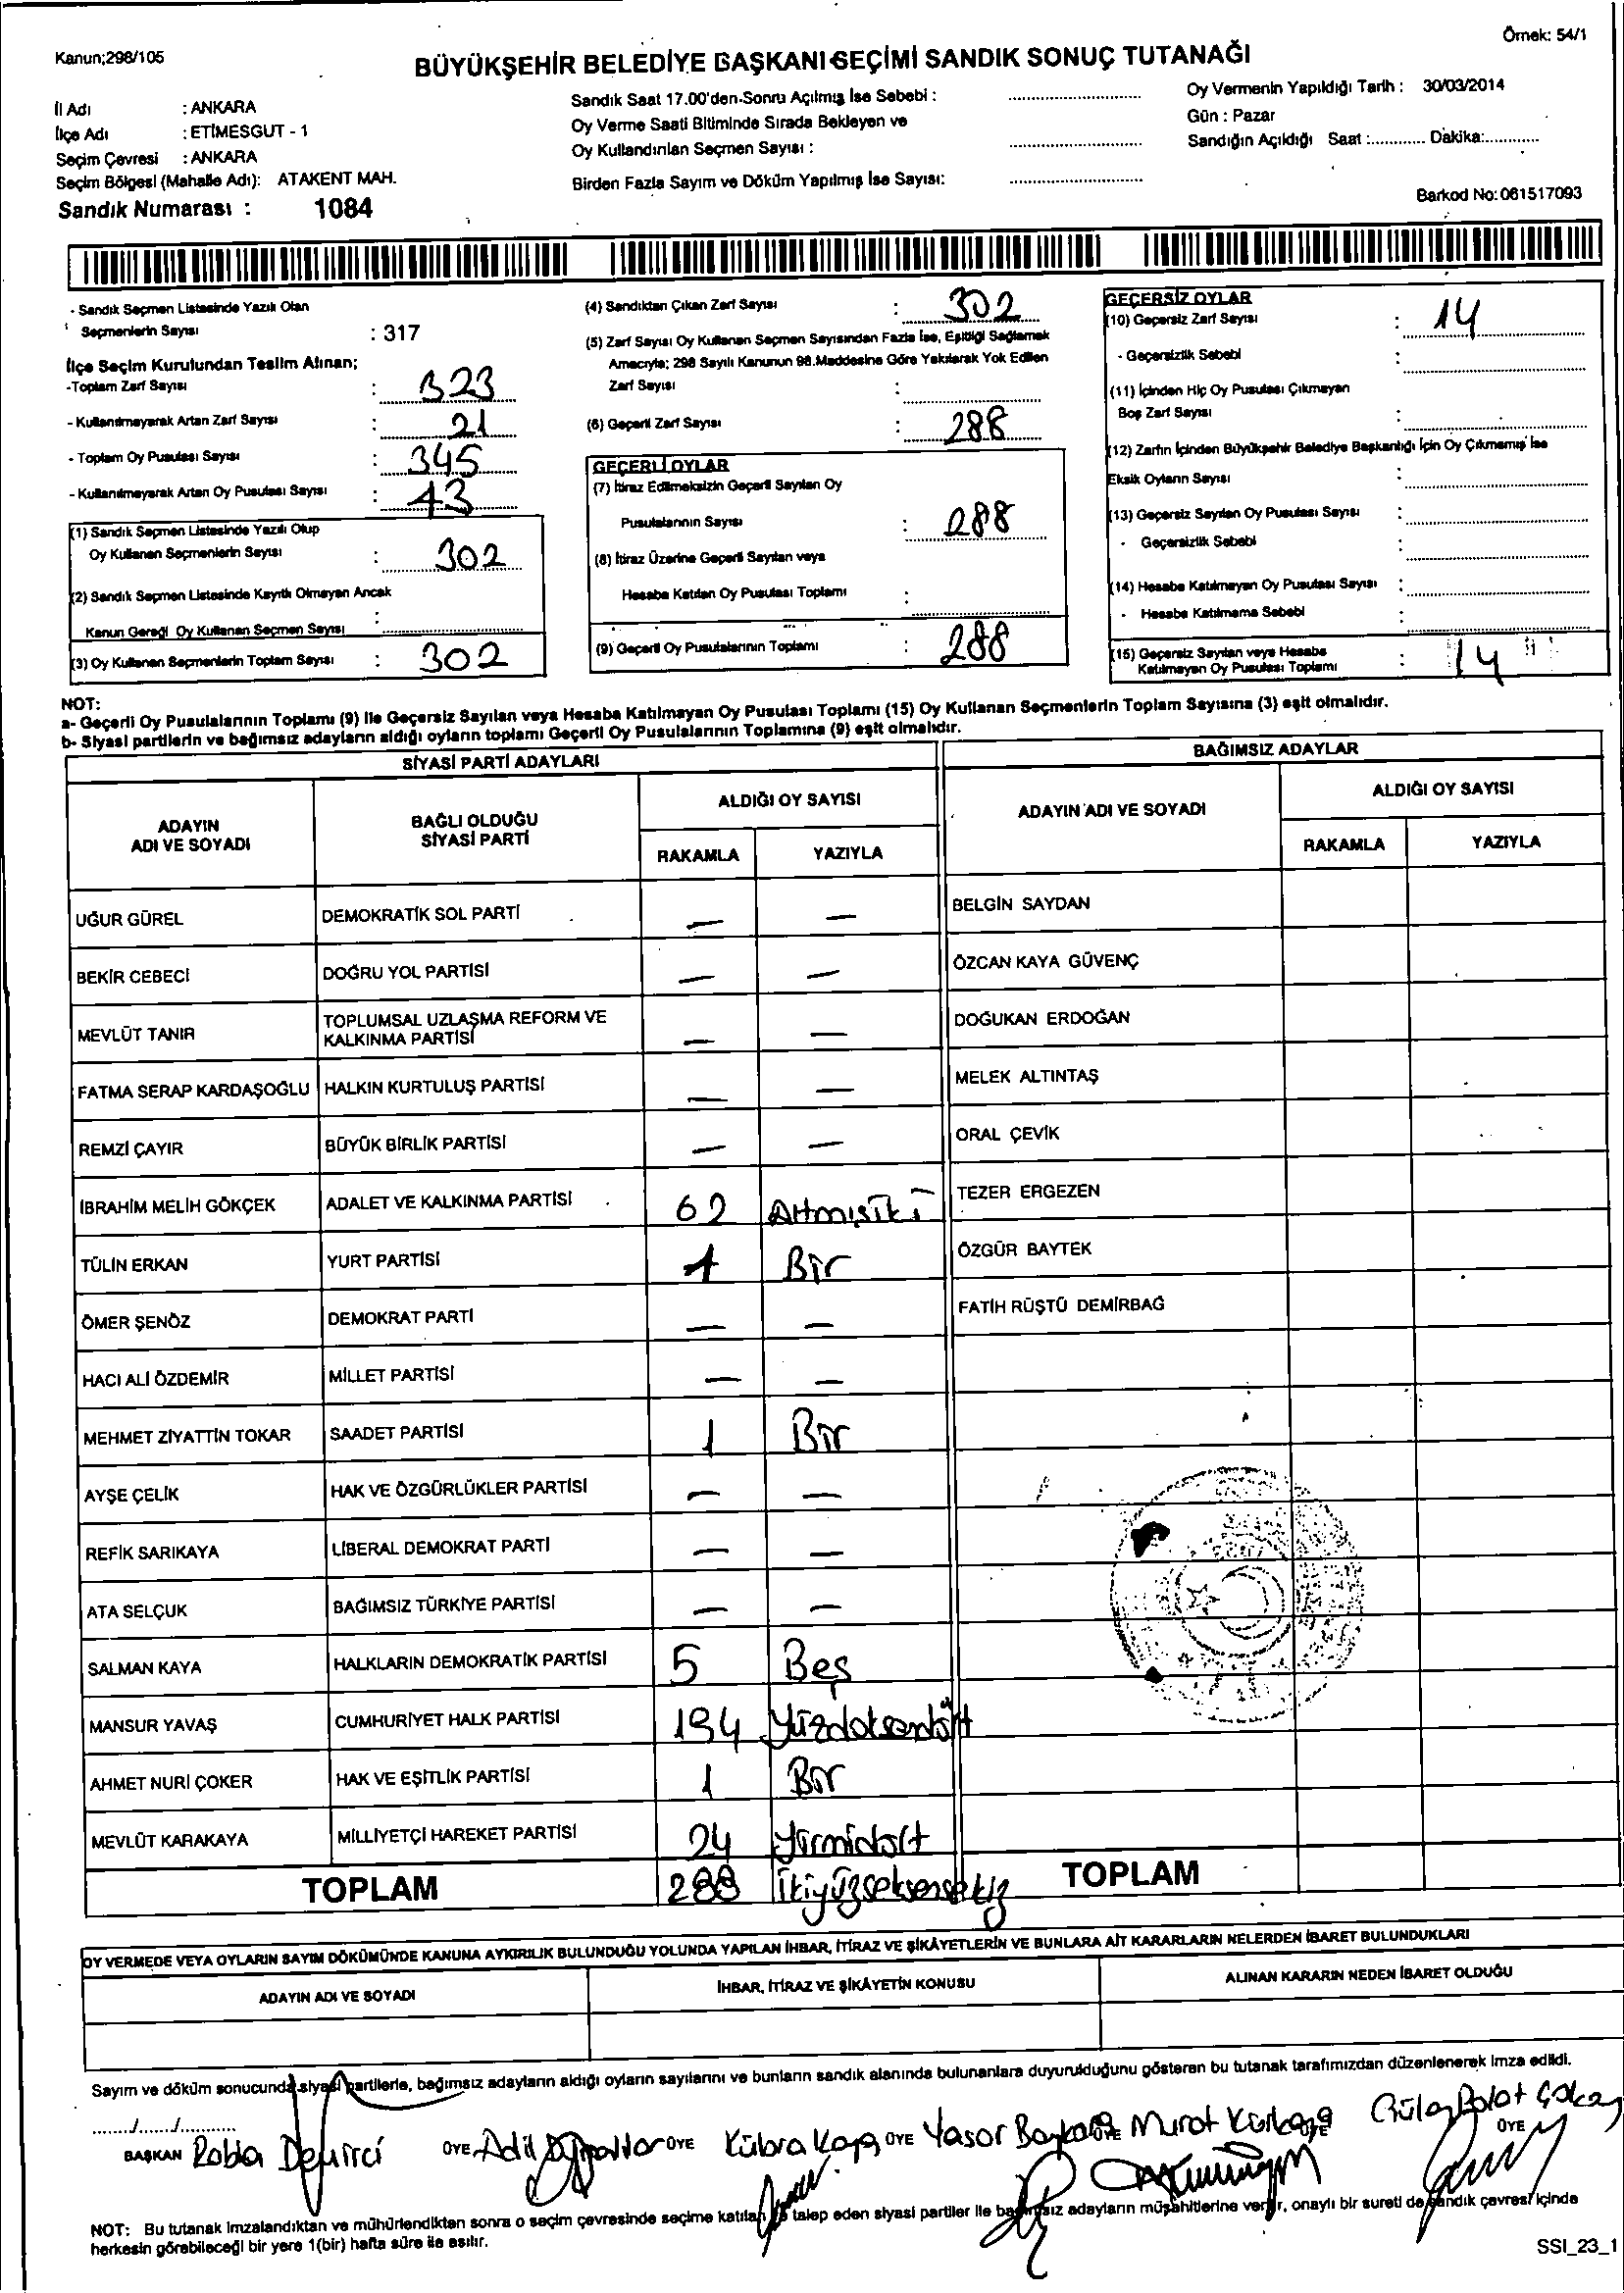 Kanun;298/105
Örnek: 54/1
BÜYÜKŞEHİR BELEDİYE BAŞKANI SEÇİMİ SANDIK SONUÇ TUTANAĞI
İl Adı : ANKARA
İlçe Adı : ETİMESGUT - 1
Seçim Çevresi : ANKARA
Seçim Bölgesi (Mahalle Adı): ATAKENT MAH.
Sandık Numarası : 1084
Sandık Saat 17.00'den Sonra Açılmış İse Sebebi :
Oy Verme Saati Bitiminde Sırada Bekleyen ve
Oy Kullandırılan Seçmen Sayısı :
Birden Fazla Sayım ve Döküm Yapılmış İse Sayısı:
Oy Vermenin Yapıldığı Tarih : 30/03/2014
Gün : Pazar
Sandığın Açıldığı Saat :............ Dakika:............
Barkod No:061517093
- Sandık Seçmen Listesinde Yazılı Olan
Seçmenlerin Sayısı : 317
İlçe Seçim Kurulundan Teslim Alınan;
-Toplam Zarf Sayısı : 323
- Kullanılmayarak Artan Zarf Sayısı : 21
- Toplam Oy Pusulası Sayısı : 345
- Kullanılmayarak Artan Oy Pusulası Sayısı : 43
(1) Sandık Seçmen Listesinde Yazılı Olup
Oy Kullanan Seçmenlerin Sayısı : 302
(2) Sandık Seçmen Listesinde Kayıtlı Olmayan Ancak
Kanun Gereği Oy Kullanan Seçmen Sayısı :
(3) Oy Kullanan Seçmenlerin Toplam Sayısı : 302
(4) Sandıktan Çıkan Zarf Sayısı : 302
(5) Zarf Sayısı Oy Kullanan Seçmen Sayısından Fazla İse, Eşitliği Sağlamak
Amacıyla; 298 Sayılı Kanunun 98.Maddesine Göre Yakılarak Yok Edilen
Zarf Sayısı :
(6) Geçerli Zarf Sayısı : 288
GEÇERLİ OYLAR
(7) İtiraz Edilmeksizin Geçerli Sayılan Oy
Pusulalarının Sayısı : 288
(8) İtiraz Üzerine Geçerli Sayılan veya
Hesaba Katılan Oy Pusulası Toplamı :
(9) Geçerli Oy Pusulalarının Toplamı : 288
GEÇERSİZ OYLAR
(10) Geçersiz Zarf Sayısı : 14
- Geçersizlik Sebebi :
(11) İçinden Hiç Oy Pusulası Çıkmayan
Boş Zarf Sayısı :
(12) Zarfın İçinden Büyükşehir Belediye Başkanlığı İçin Oy Çıkmamış İse
Eksik Oyların Sayısı :
(13) Geçersiz Sayılan Oy Pusulası Sayısı :
- Geçersizlik Sebebi :
(14) Hesaba Katılmayan Oy Pusulası Sayısı :
- Hesaba Katılmama Sebebi :
(15) Geçersiz Sayılan veya Hesaba
Katılmayan Oy Pusulası Toplamı : 14
NOT:
a- Geçerli Oy Pusulalarının Toplamı (9) ile Geçersiz Sayılan veya Hesaba Katılmayan Oy Pusulası Toplamı (15) Oy Kullanan Seçmenlerin Toplam Sayısına (3) eşit olmalıdır.
b- Siyasi partilerin ve bağımsız adayların aldığı oyların toplamı Geçerli Oy Pusulalarının Toplamına (9) eşit olmalıdır.
SİYASİ PARTİ ADAYLARI
ADAYIN ADI VE SOYADI
BAĞLI OLDUĞU SİYASİ PARTİ
ALDIĞI OY SAYISI
RAKAMLA YAZIYLA
UĞUR GÜREL DEMOKRATİK SOL PARTİ — —
BEKİR CEBECİ DOĞRU YOL PARTİSİ — —
MEVLÜT TANIR TOPLUMSAL UZLAŞMA REFORM VE KALKINMA PARTİSİ — —
FATMA SERAP KARDAŞOĞLU HALKIN KURTULUŞ PARTİSİ — —
REMZİ ÇAYIR BÜYÜK BİRLİK PARTİSİ — —
İBRAHİM MELİH GÖKÇEK ADALET VE KALKINMA PARTİSİ 62 Altmışiki
TÜLİN ERKAN YURT PARTİSİ 1 Bir
ÖMER ŞENÖZ DEMOKRAT PARTİ — —
HACI ALİ ÖZDEMİR MİLLET PARTİSİ — —
MEHMET ZİYATTİN TOKAR SAADET PARTİSİ 1 Bir
AYŞE ÇELİK HAK VE ÖZGÜRLÜKLER PARTİSİ — —
REFİK SARIKAYA LİBERAL DEMOKRAT PARTİ — —
ATA SELÇUK BAĞIMSIZ TÜRKİYE PARTİSİ — —
SALMAN KAYA HALKLARIN DEMOKRATİK PARTİSİ 5 Beş
MANSUR YAVAŞ CUMHURİYET HALK PARTİSİ 194 Yüzdoksandört
AHMET NURİ ÇOKER HAK VE EŞİTLİK PARTİSİ 1 Bir
MEVLÜT KARAKAYA MİLLİYETÇİ HAREKET PARTİSİ 24 Yirmidört
TOPLAM 288 İkiyüzseksensekiz
BAĞIMSIZ ADAYLAR
ADAYIN ADI VE SOYADI
ALDIĞI OY SAYISI
RAKAMLA YAZIYLA
BELGİN SAYDAN
ÖZCAN KAYA GÜVENÇ
DOĞUKAN ERDOĞAN
MELEK ALTINTAŞ
ORAL ÇEVİK
TEZER ERGEZEN
ÖZGÜR BAYTEK
FATİH RÜŞTÜ DEMİRBAĞ
TOPLAM
OY VERMEDE VEYA OYLARIN SAYIM DÖKÜMÜNDE KANUNA AYKIRILIK BULUNDUĞU YOLUNDA YAPILAN İHBAR, İTİRAZ VE ŞİKÂYETLERİN VE BUNLARA AİT KARARLARIN NELERDEN İBARET BULUNDUKLARI
ADAYIN ADI VE SOYADI İHBAR, İTİRAZ VE ŞİKÂYETİN KONUSU ALINAN KARARIN NEDEN İBARET OLDUĞU
Sayım ve döküm sonucunda siyasi partilerle, bağımsız adayların aldığı oyların sayılarını ve bunların sandık alanında bulunanlara duyurulduğunu gösteren bu tutanak tarafımızdan düzenlenerek imza edildi.
....../....../............
BAŞKAN Rabia Demirci ÜYE Adil ÜYE Kübra Kaya ÜYE Yaşar ÜYE Murat ÜYE Gülay Polat ÜYE
NOT: Bu tutanak imzalandıktan ve mühürlendikten sonra o seçim çevresinde seçime katılan ve talep eden siyasi partiler ile bağımsız adayların müşahitlerine verilir, onaylı bir sureti de sandık çevresi içinde
herkesin görebileceği bir yere 1(bir) hafta süre ile asılır.
SSI_23_1